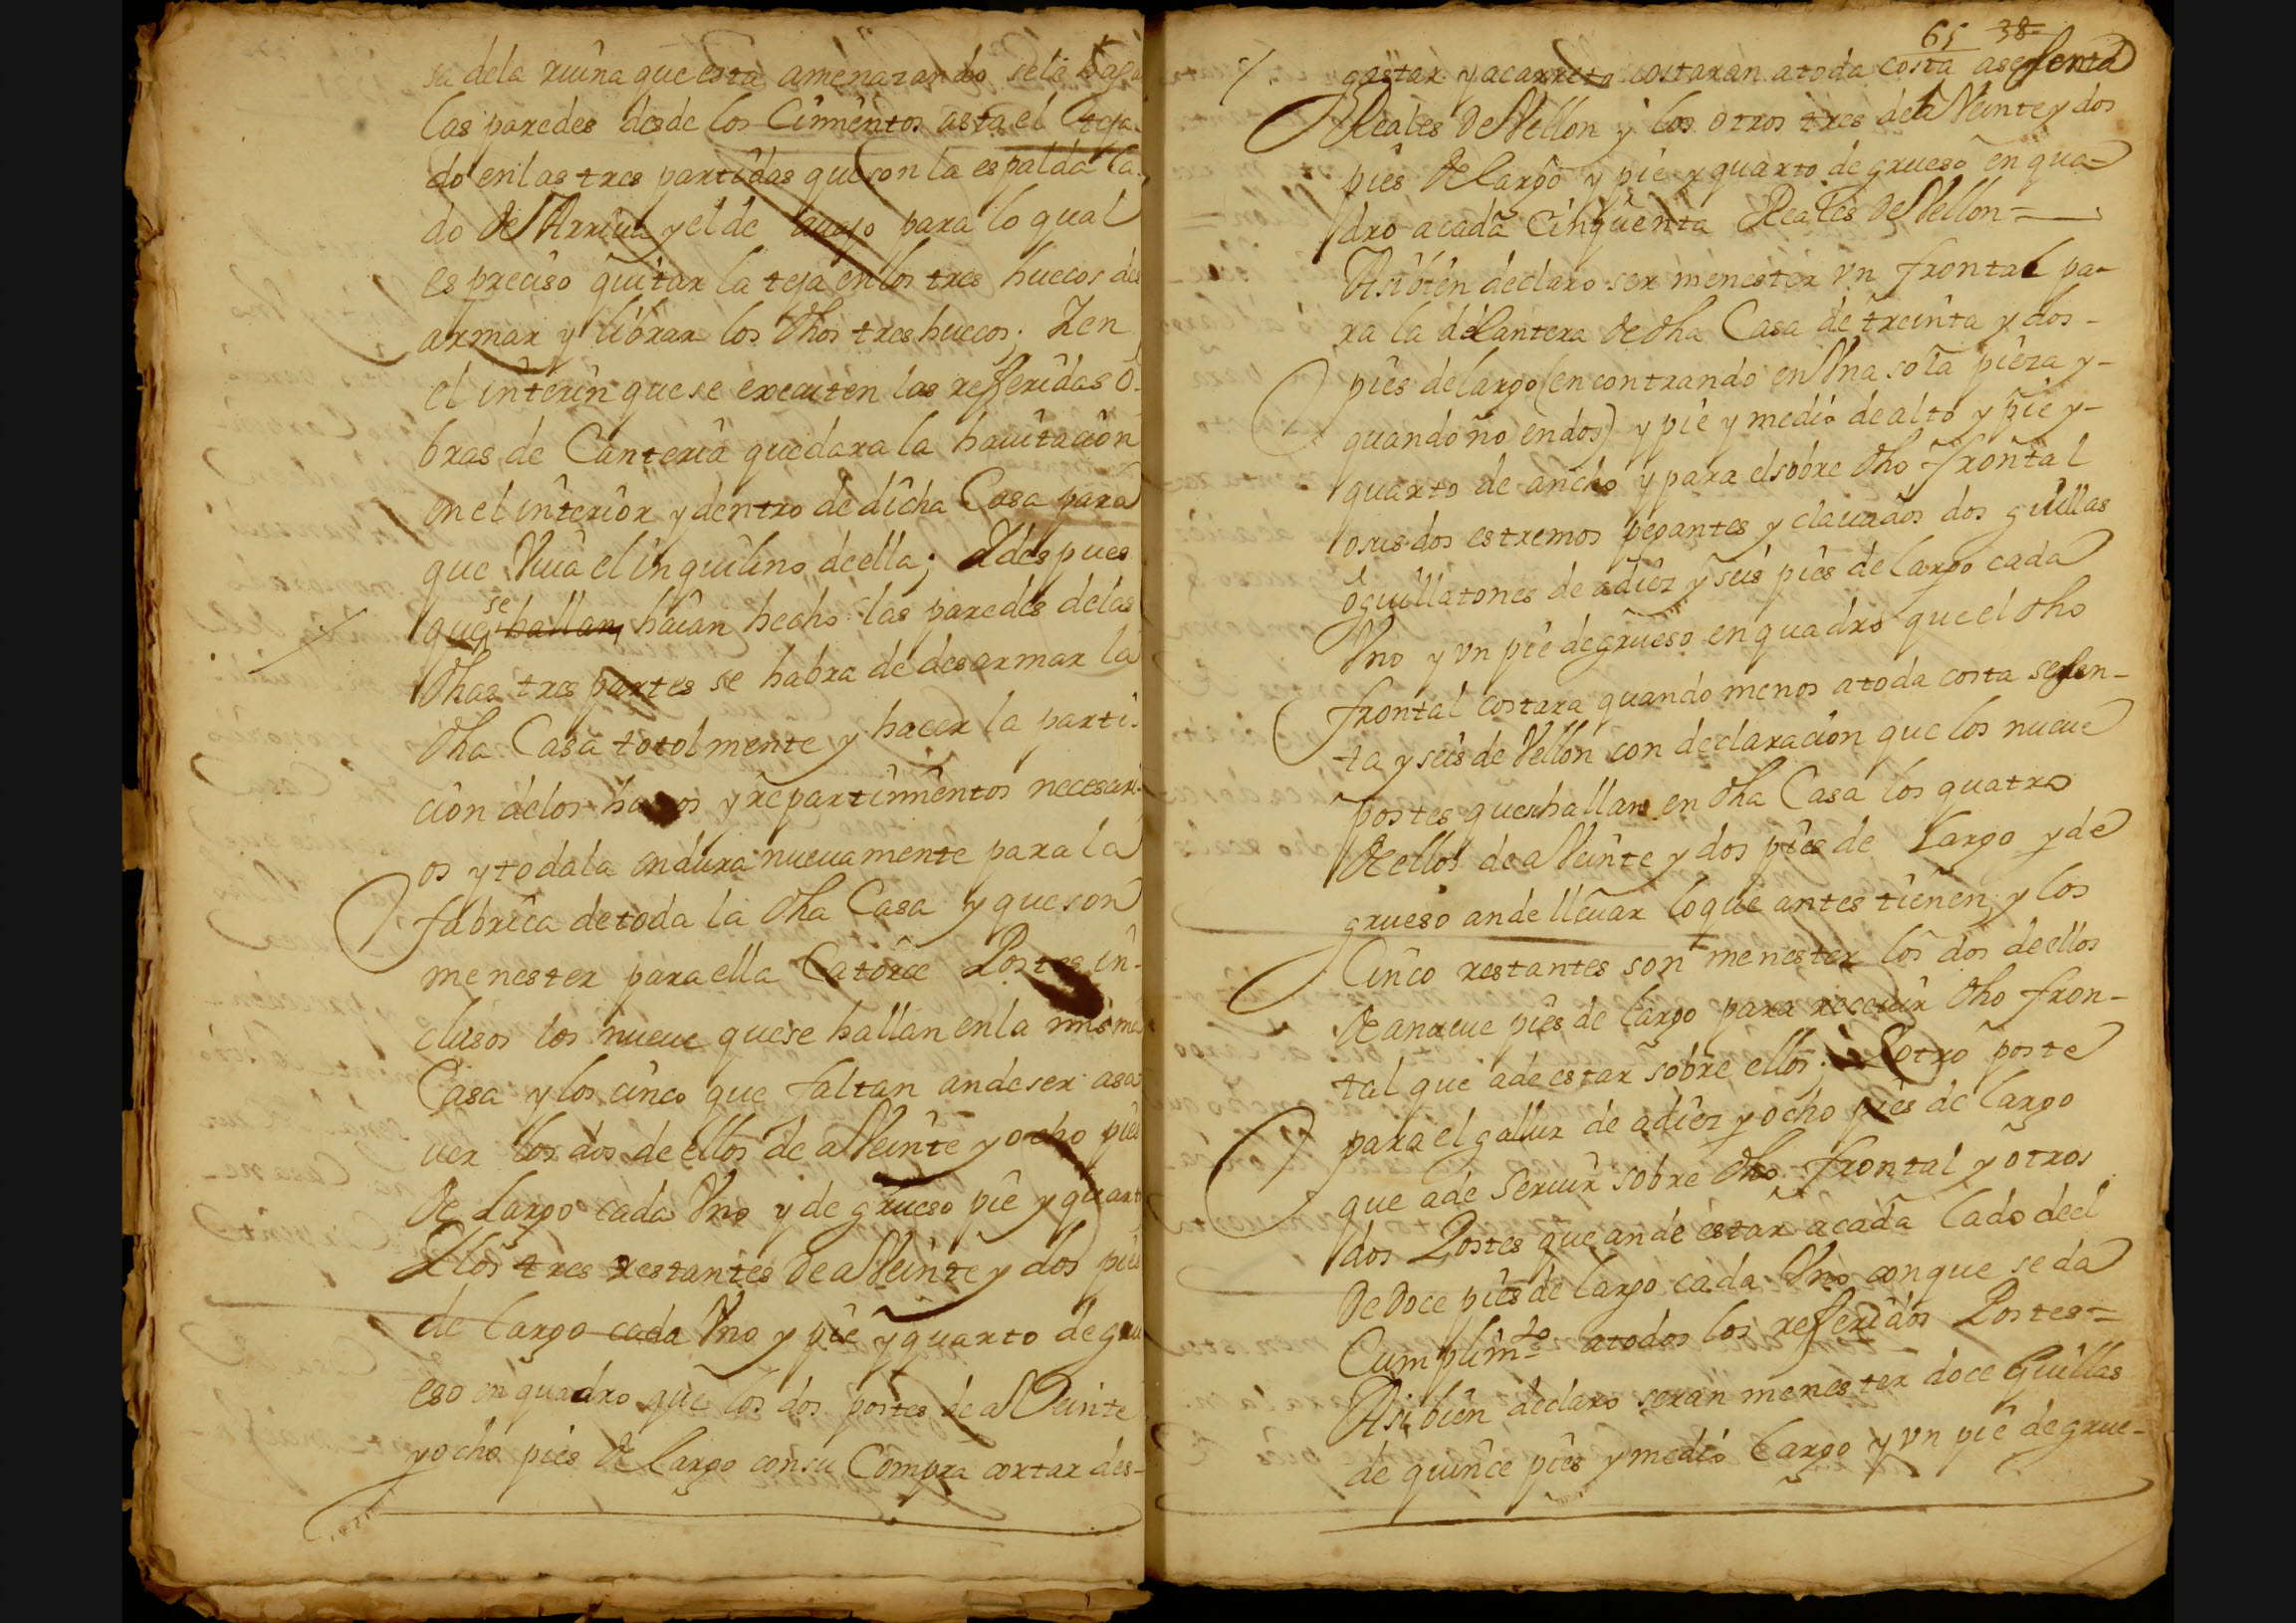 sa dela ruina que esta amenazando sele haga
las paredes desde los Cimientos asta el teja
do enlas tres partidas que son la espalda la
do de Arriua y el de auajo para lo qual
es preciso quitar la teja enlos tres huecos des
armar y librar los dhos tres huecos; Y en
el interin que se executen las refferidas o-
bras de Canteria quedara la hauitacion
en el interior y dentro de dicha Casa para
que Viua el inquilino de ella; Y despues
que se hallan haian hecho las paredes delas
dhas tres partes se habra de desarmar la
dha Casa totolmente y hacer la parti-
cion delos y repartimientos necesari-
os y toda la nueuamente para la
fabrica de toda la dha Casa y que son
menester para ella Catorce Postes in-
clusos los nueue que se hallan enla misma
Casa y los cinco que faltan ande ser asa
uer los dos de ellos de a Veinte y ocho pies
de Largo cada Vno y de grueso pie y quarto
Y los tres restantes de a Veinte y dos pies
de largo cada Vno y pie y quarto de gru
eso en quadro que los dos postes de a Veinte
y ocho pies de largo con su Compra cortar des-
65 38
gastar y acarreto costaran a toda costa a sesenta
Reales de Vellon y los otros tres de a Veinte y dos
pies de largo y pie y quarto de grueso en qua-
dro a cada Cinquenta Reales de Vellon=
Asi bien declaro ser menester vn frontal pa-
ra la delantera de dha Casa de treinta y dos-
pies de largo (encontrando en Vna sola pieza y-
quando no en dos) y pie y medio de alto y pie y-
quarto de ancho y para el sobre dho frontal
o sus dos estremos pegantes y clauados dos guillas
o guillatones de a diez y seis pies de largo cada
Vno y vn pie de grueso en quadro que el dho
frontal costara quando menos a toda costa sesen-
ta y seis de Vellon con declaracion que los nueue
postes que se hallan en dha Casa los quatro
de ellos de a Veinte y dos pies de Largo y de
grueso ande lleuar lo que antes tienen y los
Cinco restantes son menester los dos de ellos
de a nueue pies de largo para receuir dho fron-
tal que a de estar sobre ellos; Y otro poste
para el gallur de a diez y ocho pies de largo
que a de seruir sobre dho frontal y otros
dos Postes que ande estar a cada lado de el
de doce pies de largo cada Vno con que se da
Cumplimto a todos los refferidos Postes=
Asi bien declaro seran menester doce Guillas
de quince pies y medio largo y vn pie de grue-